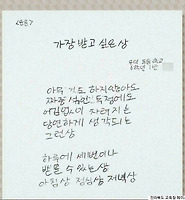 가장 받고 싶은 상
6학년 1반
아무 것도 하지 않아도
짜증 섞인 투정에도
어김없이 차려지는
당연하게 생각되는
그런 상
하루에 세번이나
받을 수 있는 상
아침상 점심상 저녁상
전라북도 교육청 제공